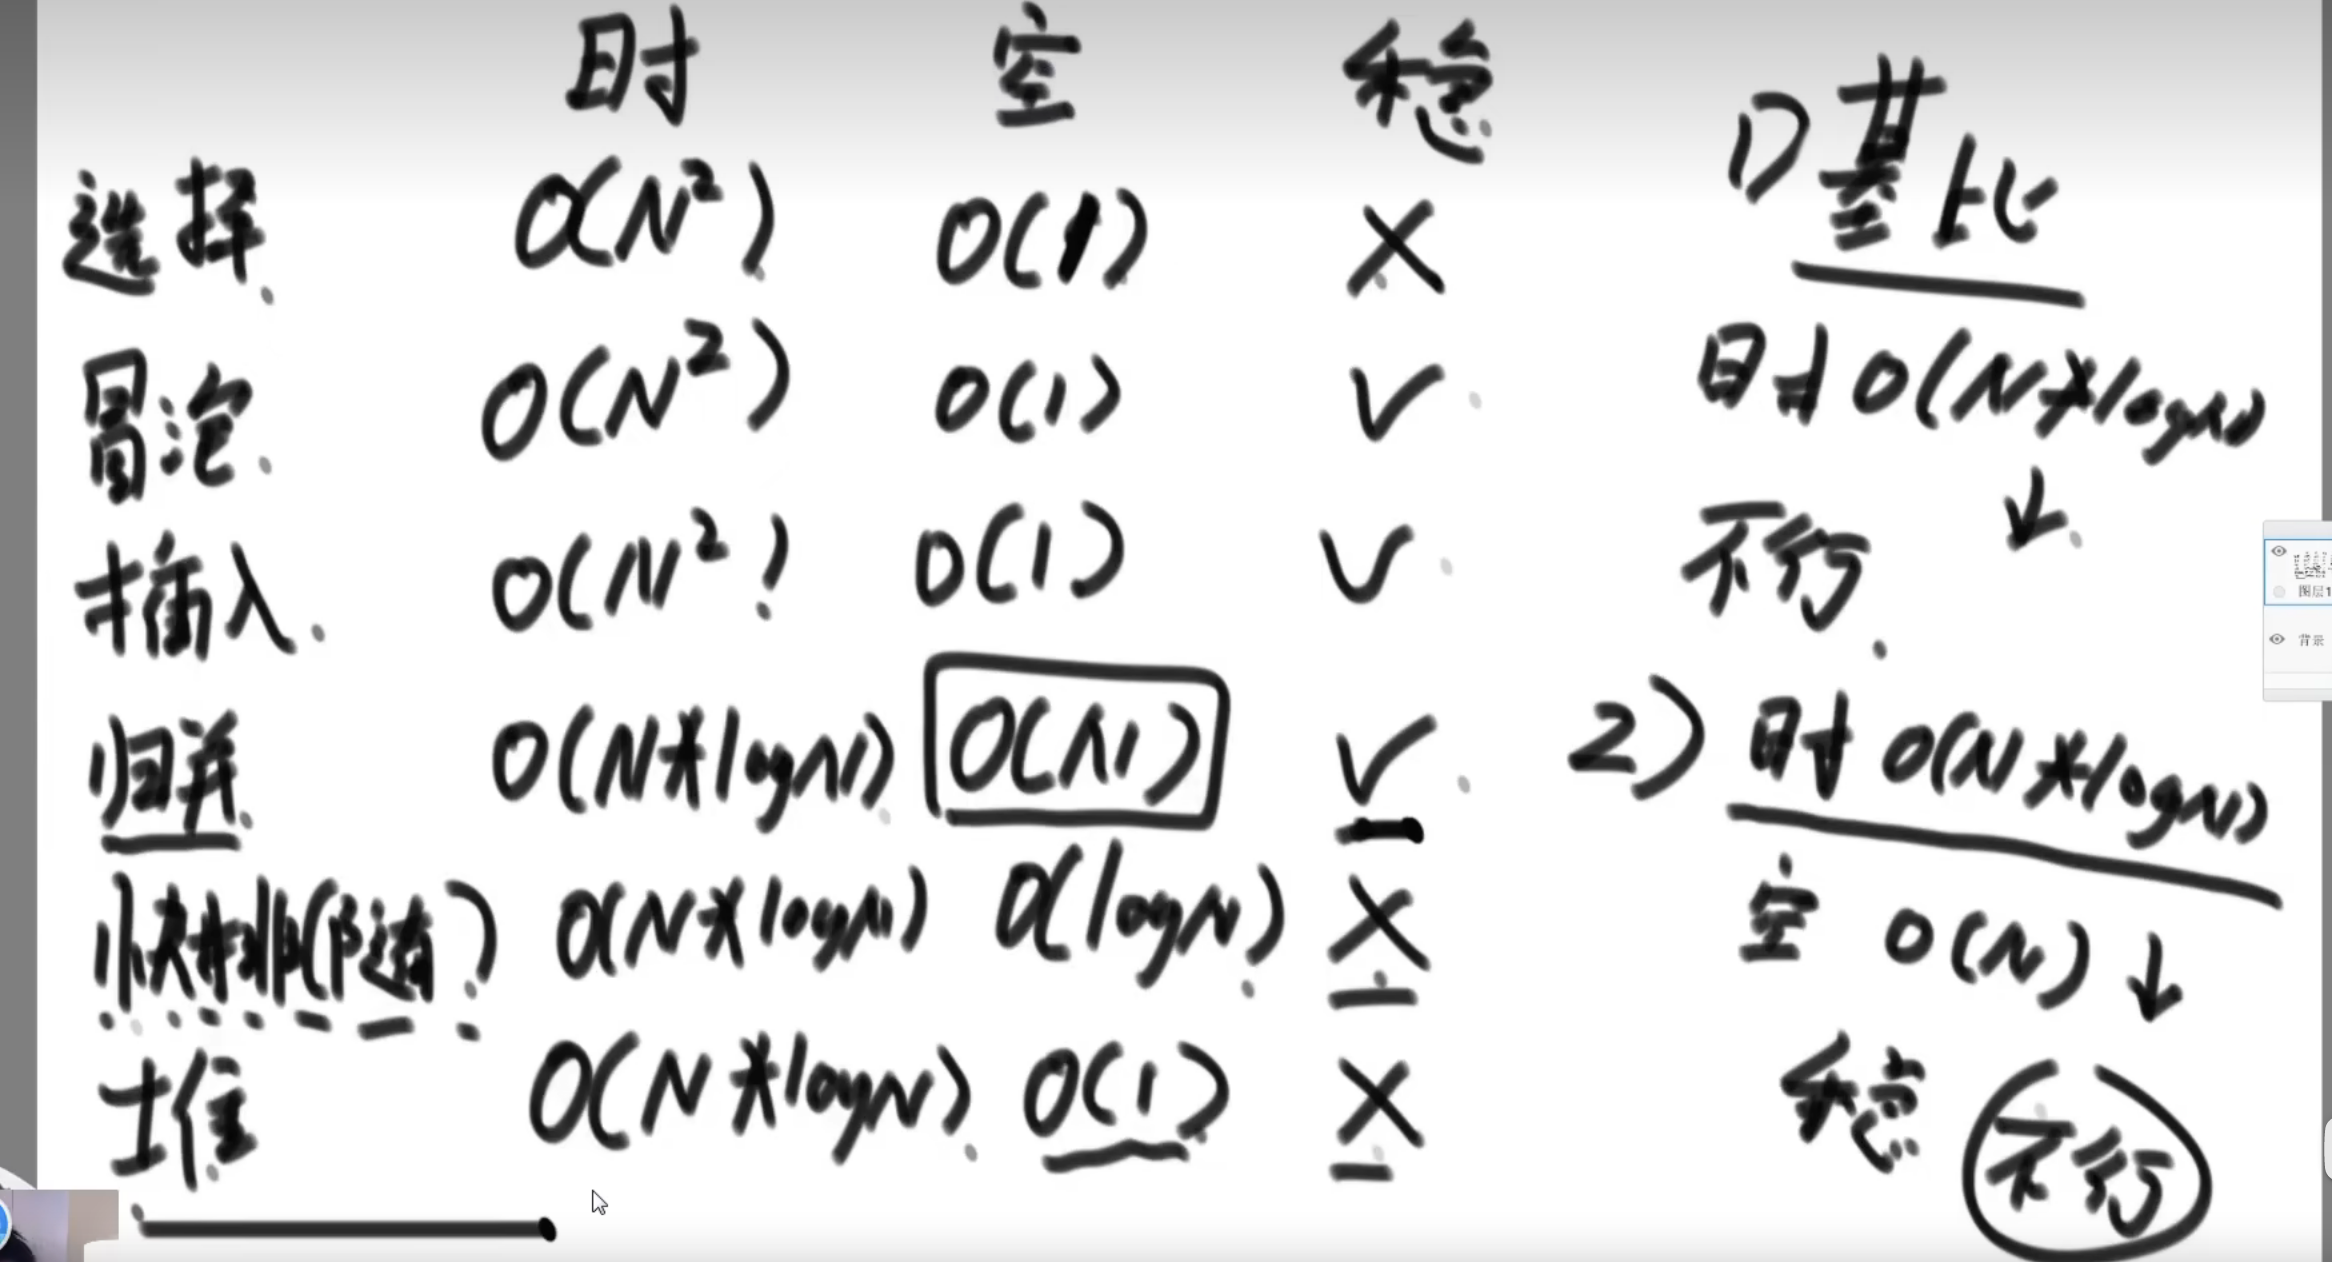 时 空 稳
选择 O(N²) O(1) X
冒泡 O(N²) O(1) √
插入 O(N²) O(1) √
归并 O(N*logN) O(N) √
快排(随) O(N*logN) O(logN) X
堆 O(N*logN) O(1) X
1) 基比
时 O(N*logN)
↓
不行
2) 时 O(N*logN)
空 O(N) ↓
稳 不行
图层1
背景